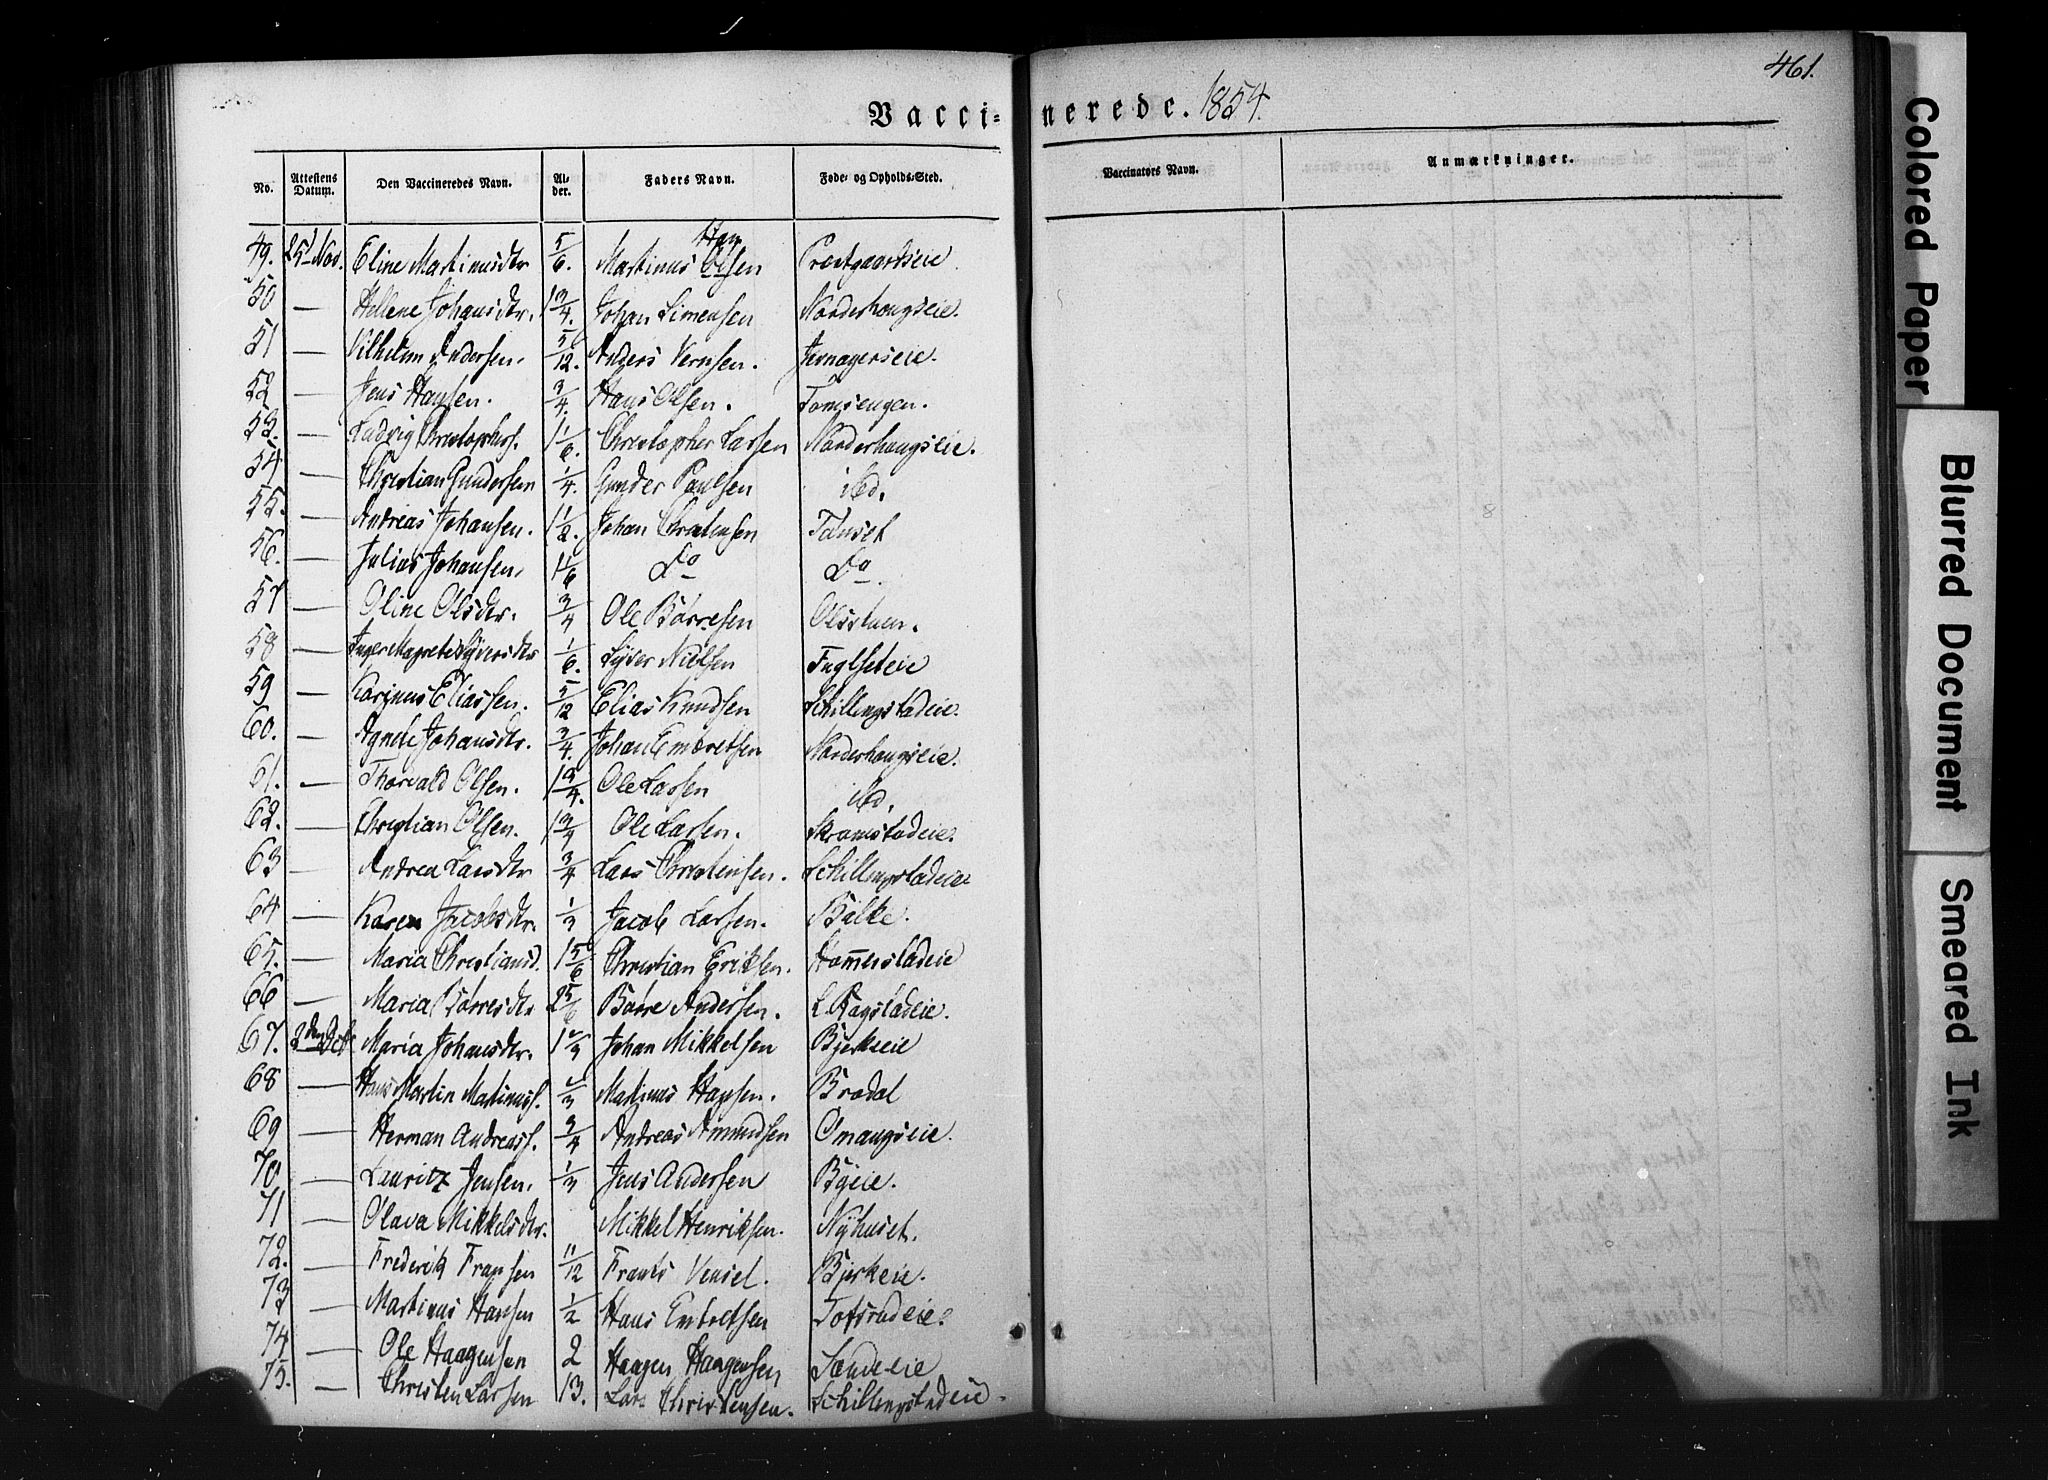 461.
Vaccinerede. 1854.
No. Attestens Datum. Den Vaccineredes Navn. Alder. Faders Navn. Føde- og Opholds-Sted. Vaccinators Navn. Anmærkninger.
49. 25 Nov. Eline Martinusdtr 5/6. Martinus Olsen Præstgaardseie
50 — Hellene Johansdtr. 1 3/4. Johan Simensen Norderhougseie.
51 — Vilhelm Andersen. 5/12. Anders Vernsen. Jevnagerseie.
52 — Jens Hansen. 3/4. Hans Olsen. Tomsengen.
53. — Ludvig Christophers. 1 1/6. Christopher Larsen Norderhougseie.
54 — Christian Gundersen 1/4. Gunder Paulsen ibd.
55. — Andreas Johansen. 1 1/2. Johan Christensen
56. — Julius Johansen. 1 1/6 Do Do.
57 — Oline Olsdtr. 3/4 Ole Börresen Olsstuen.
58 — Inger Magrete Syversdtr 1/6. Syver Nielsen Fuglseteie
59 — Karinus Eliassen. 5/12 Elias Knudsen Schillingstadeie.
60. — Agnete Johansdtr. 3/4. Johan Embretsen Norderhougseie.
61. — Thorvald Olsen. 1 3/4. Ole Larsen ibd.
62. — Christian Olsen. 1 3/4 Ole Larsen. Skramstadeie.
63 — Andrea Larsdtr 3/4 Lars Christensen. Schillingstadeie
64 — Karen Jacobsdtr. 1/3 Jacob Larsen. Balke.
65. — Maria Christiansd. 1 5/6 Christian Eriksen. Hom̅erstadeie
66 — Maria Börresdtr 2 5/6 Börre Andersen. L. Ragstadeie.
67. 2den Maria Johansdtr. 1 2/3 Johan Mikkelsen Bjerkeeie
68 — Hans Martin Martinuss. 2/3 Martinus Hansen. Brodal
69 — Herman Andreass. 3/4 Andreas Amundsen Omangseie.
70 — Lauritz Jensen. 1/3 Jens Andersen Byeie.
71 — Olava Mikkelsdtr. Mikkel Henriksen. Nyhuset.
72. — Frederik Fransen 11/12 Frants Vensel. Bjerkeie.
73 — Martinus Hansen 1/2 Hans Embretsen Tofsrudeie.
74 — Ole Haagensen 2 Haagen Haagensen Sandeeie
75. — Christen Larsen 13. Lars Christensen. Schillingstadeie.
Colored Paper
Blurred Document
Smeared Ink